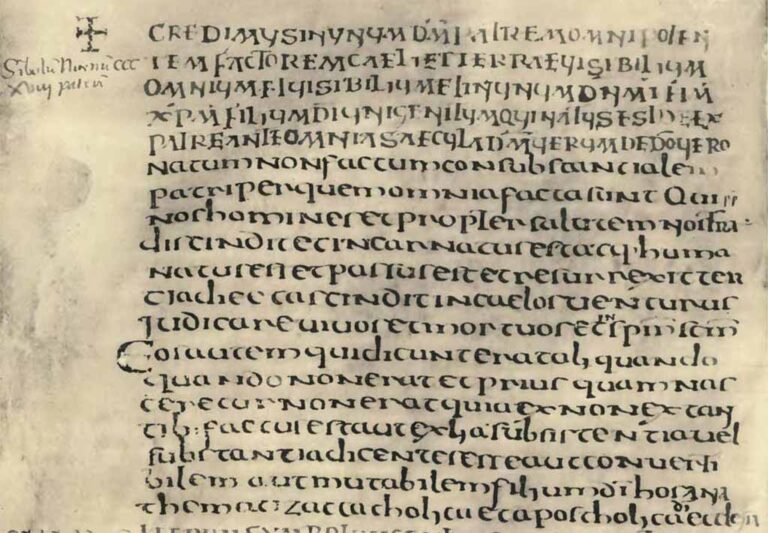 Sibolū Nicenū CCC
XVIII patrū
CREDIMUS IN UNUM DM̄ PATREM OMNIPOTEN
TEM FACTOREM CAELI ET TERRAE VISIBILIUM
OMNIUM ET VISIBILIUM ET IN UNUM DNM IHM
XPM FILIUM DI UNIGENITUM QUI NATUS EST ID EST EX
PATRE ANTE OMNIA SAECULA DM̄ VERUM DE DO VERO
natum non factum consubstancialem
patri per quem omnia facta sunt Qui pp
nos homines et propter salutem nostra
discindit et incarnatus est atq huma
natus est et passus est et resurrexit ter
tia die et ascindit in caelos venturus
judicare vivos et mortuos et IN spm scm
Eos autem qui dicunt erat aliquando
quando non erat et prius quam nas
ceretur non erat quia ex non extan
tib factus est aut ex alia subsistentia vel
substantia dicentes esse aut converti
bilem aut mutabilem filium di hos ana
themaizat catholica et apostolica